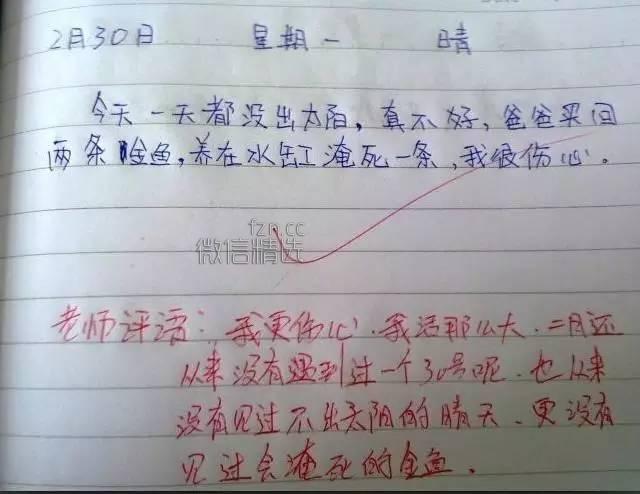 2月30日 星期一 晴
今天一天都没出太阳,真不好,爸爸买回
两条金鱼,养在水缸淹死一条,我很伤心。
fzn.cc
微信精选
老师评语:我更伤心.我活那么大.二月还
从来没有遇到过一个30号呢.也从来
没有见过不出太阳的晴天.更没有
见过会淹死的金鱼.